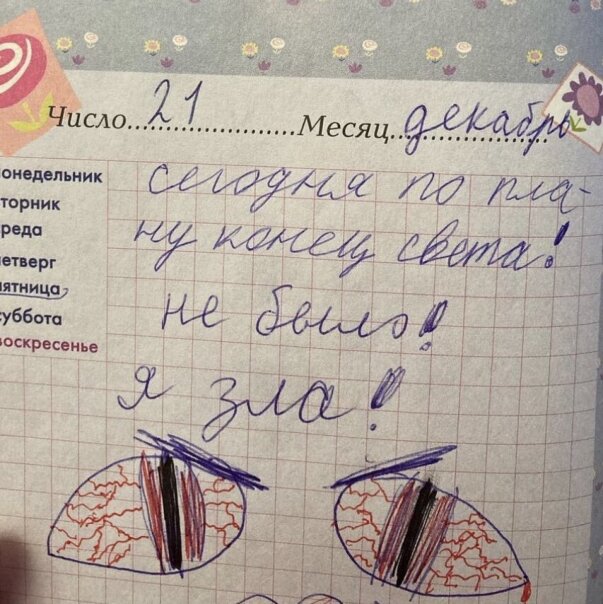 Число 21 Месяц декабрь
онедельник
торник
реда
четверг
пятница
суббота
воскресенье
сегодня по пла-
ну конец света!
не было!
я зла!